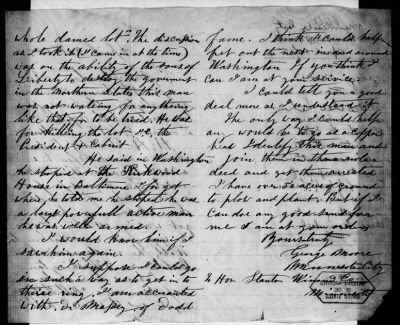 whole damed lot". The discussion
as I took it (I came in at the time)
was on the ability of the sons of
Liberty to destroy the government
in the Northern States this man
was not wating for anything
like that for to be tried. He was
for killing the lot I.E. the
President & Cabinit
He said in Washington
he stoped at the Kirkwood
House in Baltimore I forget
where he told me he stoped he was
a large powerfull active man
he was well armed.
I would know him if I
saw him again.
I suppose I could go
in such a way as to get in to
there ring. I am acquainted
with Dr Massey of Dodd
fame. I think I could help
put out the next move around
Washington If you think I
Can I am at your service.
I could tell you a good
deal more as I understand it
The only way I could help
any would be to go as a Copper
head Identify this man and
Join them in there
deed and get them arrested
I have over acres of ground
to plow and plant. But if I
Can doe any good send for
me I am at your orders
Yours truly
George Moore
Minnesota City
To Hon Stanton